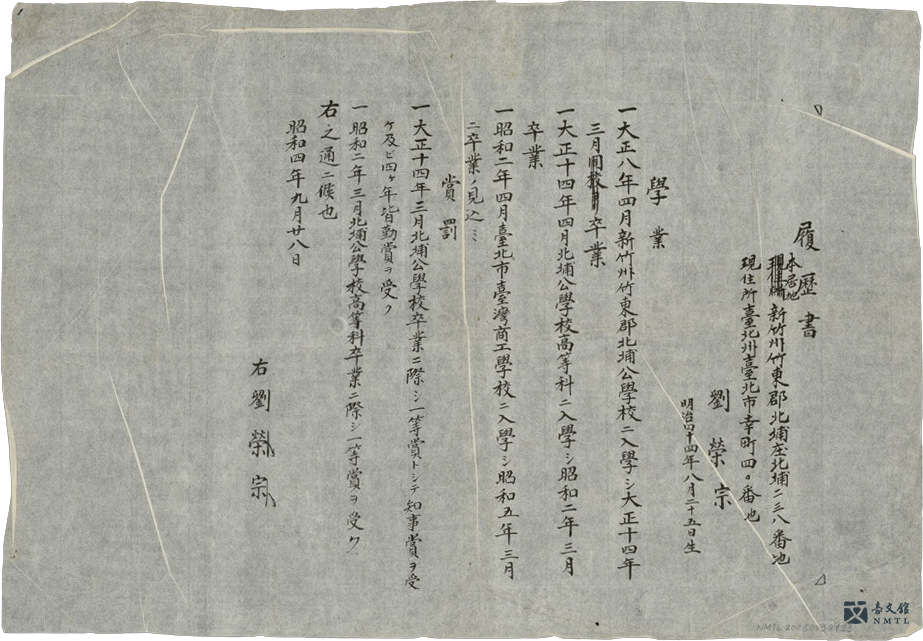 履歷書
本居地
新竹州竹東郡北埔庄北埔二三八番地
現住所臺北州臺北市幸町四〇番地
劉榮宗
明治四十四年八月二十五日生
學業
一大正八年四月新竹州竹東郡北埔公學校ニ入學シ大正十四年
三月卒業
一大正十四年四月北埔公學校高等科ニ入學シ昭和二年三月
卒業
一昭和二年四月臺北市臺灣商工學校ニ入學シ昭和五年三月
ニ卒業ノ見込ミ
賞罰
一大正十四年三月北埔公學校卒業ニ際シ一等賞トシテ知事賞ヲ受
ケ及ビ四ヶ年皆勤賞ヲ受ク
一昭和二年三月北埔公學校高等科卒業ニ際シ一等賞ヲ受ク
右之通ニ候也
昭和四年九月廿八日
右劉榮宗
臺文館
NMTL